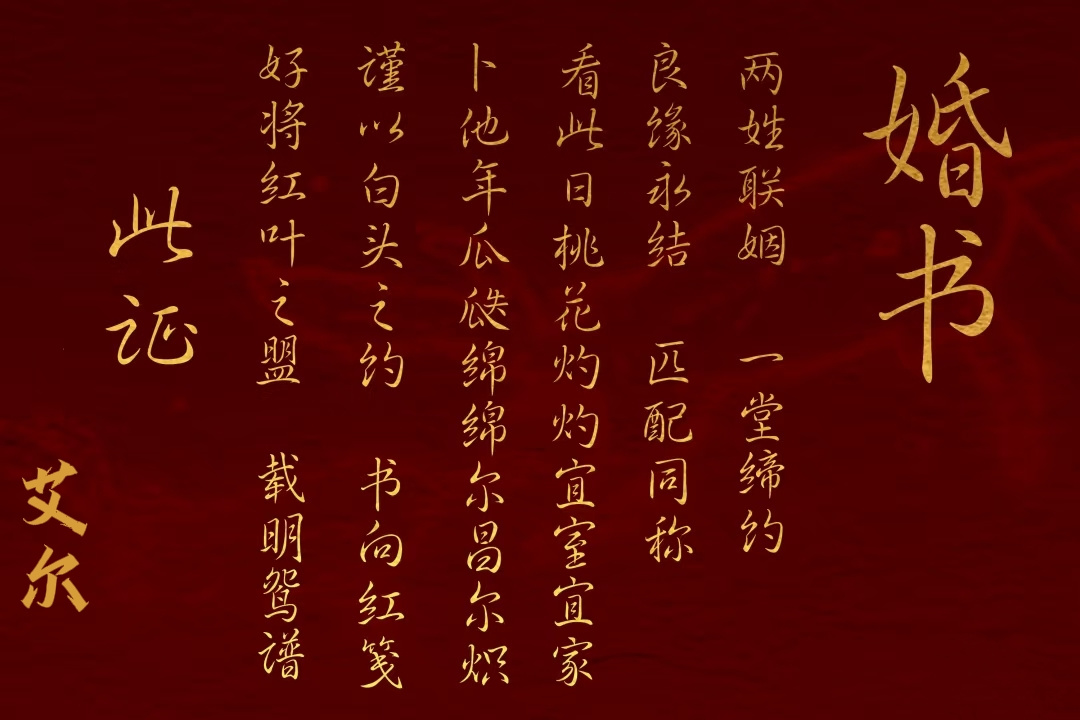 婚书
两姓联姻 一堂缔约
良缘永结 匹配同称
看此日桃花灼灼宜室宜家
卜他年瓜瓞绵绵尔昌尔炽
谨以白头之约 书向红笺
好将红叶之盟 载明鸳谱
此证
艾尔